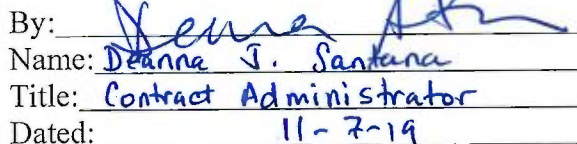 By:
Name: Deanna J. Santana
Title: Contract Administrator
Dated: 11-7-19